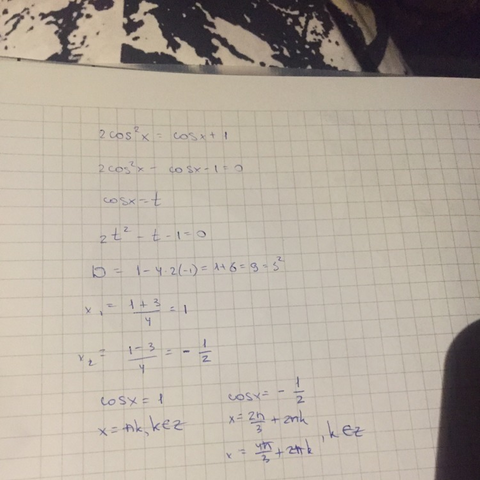 2cos²x = cosx+1
2cos²x - cosx-1=0
cosx=t
2t² - t -1=0
D = 1-4·2(-1)=1+8=9=3²
x₁ = (1+3)/4 = 1
x₂ = (1-3)/4 = -1/2
cosx = 1
x = πk, k∈z
cosx = -1/2
x = 2π/3 + 2πk
x = 4π/3 + 2πk, k∈z